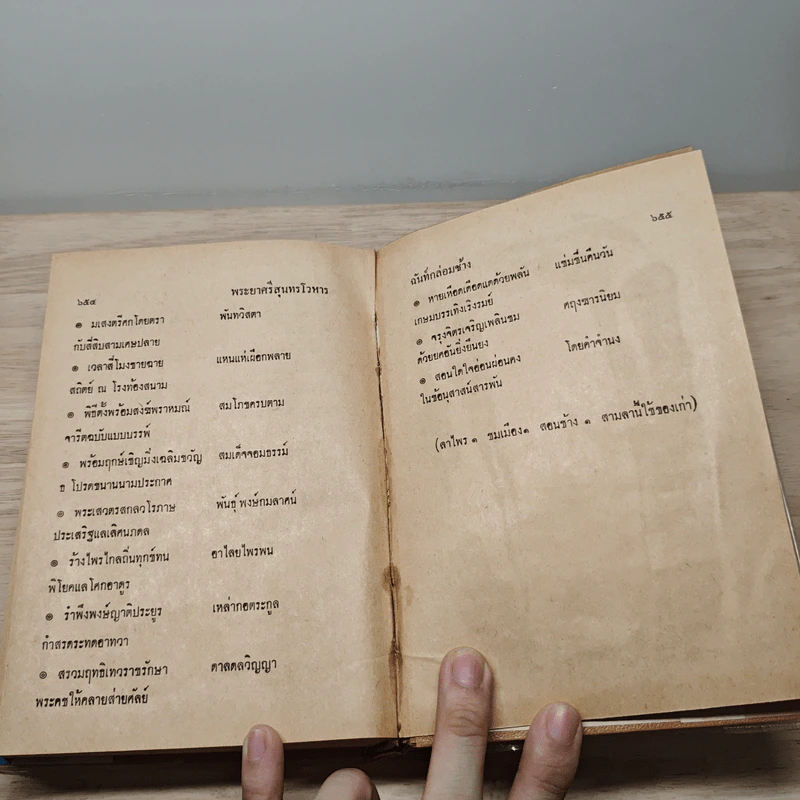 ๖๕๔
พระยาศรีสุนทรโวหาร
๏ มเสงตรีศกโดยตรา พันทวิสตา
กับสี่สิบสามเศษปลาย
๏ เวลาสี่โมงชายฉาย แหนแห่เผือกพลาย
สถิตย์ ณ โรงท้องสนาม
๏ พิธีตั้งพร้อมสงฆ์พราหมณ์ สมโภชครบตาม
จารีตฉบับแบบบรรพ์
๏ พร้อมฤกษ์เชิญมิ่งเฉลิมขวัญ สมเด็จจอมธรรม์
ธ โปรดขนานนามประกาศ
๏ พระเสวตรสกลวโรภาษ พันธุ์พงษ์กมลาศน์
ประเสริฐแลเลิศนภดล
๏ ร้างไพรไกลถิ่นทุกข์ทน อาไลยไพรพน
พิโยคแลโศกอาดูร
๏ รำพึงพงษ์ญาติประยูร เหล่ากอตระกูล
กำสรดระทดอาทวา
๏ สรวมฤทธิเทวราชรักษา ดาลดลวิญญา
พระคชให้คลายส่ายศัลย์
๖๕๕
ฉันท์กล่อมช้าง
๏ หายเหือดเดือดแดด้วยพลัน แช่มชื่นคืนวัน
เกษมบรรเทิงเริงรมย์
๏ จรุงจิตรเจริญเพลินชม ศฤงฆารนิยม
ด้วยยคอันยิ่งยืนยง
๏ สอนใดใจอ่อนผ่อนคง โดยคำจำนง
ในข้อนุสาสน์สารพัน
(ลาไพร ๑ ชมเมือง๑ สอนช้าง ๑ สามลานี้ใช้ของเก่า)